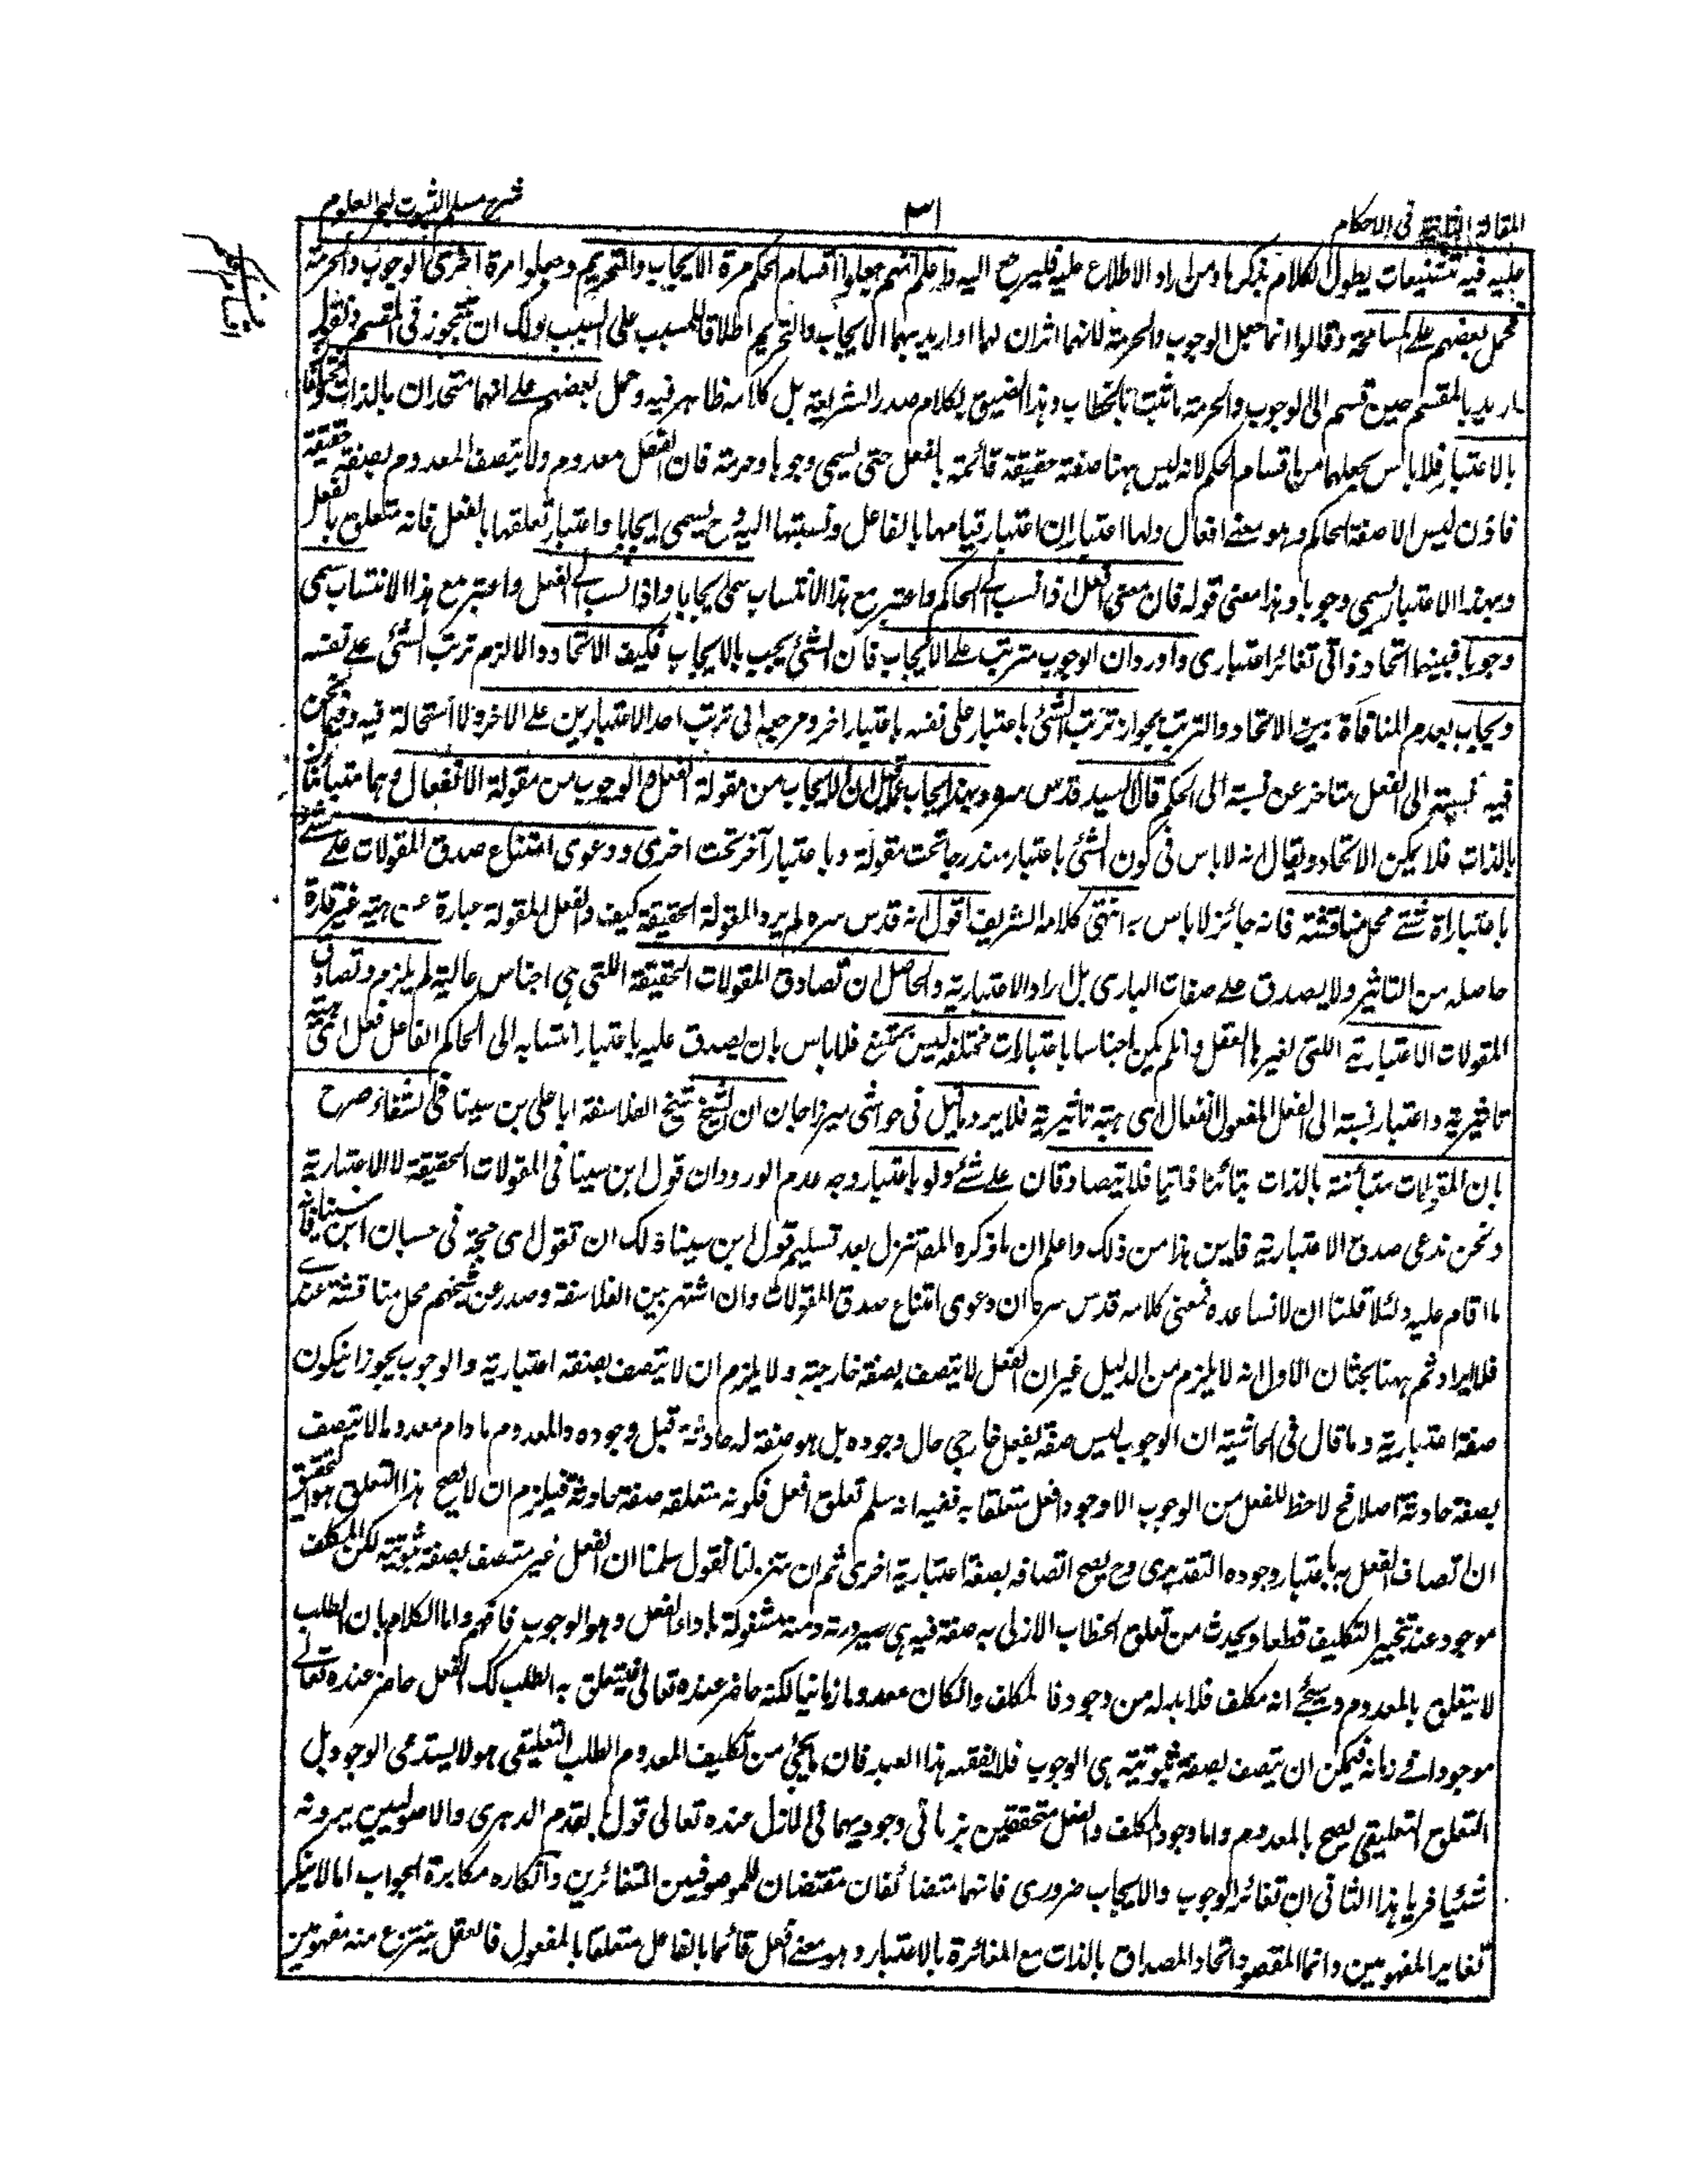 المقالة الثانية فى الاحكام
٣١
شرح مسلم الثبوت لبحر العلوم
عليه فيه تشنيعات يطول الكلام بذكرها ومن اراد الاطلاع عليه فليرجع اليه واعلم انهم جعلوا اقسام الحكم مرة الايجاب والتحريم وجعلوا مرة اخرى الوجوب والحرمة
فحمل بعضهم على المسامحة وقالوا انما جعل الوجوب والحرمة لانهما اثران لهما او اريد بهما الايجاب والتحريم اطلاقا للمسبب على السبب ولك ان تتجوز فى المقسم وتقول
اريد بالمقسم حين قسم الى الوجوب والحرمة ما ثبت بالخطاب وهذا الصق بكلام صدر الشريعة بل كلامه ظاهر فيه وحمل بعضهم على انهما متحدان بالذات
بالاعتبار فلا باس بجعلهما من اقسام الحكم لانه ليس ههنا صفة حقيقة قائمة بالفعل حتى يسمى وجوبا وحرمة فان الفعل معدوم ولا يتصف المعدوم بصفة حقيقة
فاذن ليس الا صفة الحاكم وهو معنى افعال ولها اعتباران اعتبار قيامها بالفاعل ونسبتها اليه وح يسمى ايجابا واعتبار تعلقها بالفعل فانه متعلق بالفعل
وبهذا الاعتبار يسمى وجوبا وهذا معنى قوله فان معنى افعل اذا نسب الى الحاكم واعتبر مع هذا الانتساب سمى ايجابا واذا نسب الى الفعل واعتبر مع هذا الانتساب سمى
وجوبا فبينهما اتحاد ذاتى تغائر اعتبارى واورد ان الوجوب مترتب على الايجاب فان الشئ يجب بالايجاب فكيف الاتحاد والا لزم ترتب الشئ على نفسه
ويجاب بعدم المنافاة بين الاتحاد والترتب بجواز ترتب الشئ باعتبار على نفسه باعتبار اخر ومرجعه الى ترتب احد الاعتبارين على الاخر ولا استحالة فيه وفيما نحن
فيه نسبته الى الفعل متاخر عن نسبته الى الحكم قال السيد قدس سره وبهذا يجاب عما قيل ان الايجاب من مقولة الفعل والوجوب من مقولة الانفعال وهما متبائنتان
بالذات فلا يمكن الاتحاد ويقال انه لا باس فى كون الشئ باعتبار مندرجا تحت مقولة وباعتبار آخر تحت اخرى ودعوى امتناع صدق المقولات على شئ
باعتبارات شتى محل مناقشة فانه جائز لا باس به انتهى كلامه الشريف اقول انه قدس سره لم يرد المقولة الحقيقة كيف والفعل المقولة عبارة عن هيئة غير قارة
حاصله من التاثير ولا يصدق على صفات البارى بل اراد الاعتبارية والحاصل ان تصادق المقولات الحقيقة اللتى هى اجناس عالية لم يلزم وتصادق
المقولات الاعتبارية اللتى يعتبرها العقل وان لم يكن اجناسا باعتبارات مختلفة ليس بممتنع فلا باس بان يصدق عليه باعتبار انتسابه الى الحاكم الفاعل فعل اى هيئة
تاثيرية واعتبار نسبته الى الفعل المفعول انفعال اى هيئة تاثيرية فلا يرد ما قيل فى حواشى ميرزا جان ان الشيخ شيخ الفلاسفة ابا على بن سينا فى الشفاء صرح
بان المقولات متبائنة بالذات تبائنا ذاتيا فلا يتصادقان على شئ ولو باعتبار وجه عدم الورود ان قول ابن سينا فى المقولات الحقيقة لا الاعتبارية
ونحن ندعى صدق الاعتبارية فاين هذا من ذلك واعلم ان ما ذكره المص تنزل بعد تسليم قول ابن سينا ذلك ان تقول اى حجة فى حسبان ابن سينا فانه
ما اقام عليه دليلا قلنا ان لا نساعده فمعنى كلامه قدس سره ان دعوى امتناع صدق المقولات وان اشتهر بين الفلاسفة وصدر عن شيخهم محل مناقشة عندى
فلا ايراد ثم ههنا بحثان الاول انه لا يلزم من الدليل غير ان الفعل لا يتصف بصفة خارجية ولا يلزم ان لا يتصف بصفة اعتبارية والوجوب يجوز ان يكون
صفة اعتبارية وما قال فى الحاشية ان الوجوب ليس صفة لفعل خارجى حال وجوده بل هو صفة له حادثة قبل وجوده والمعدوم ما دام معدوما لا يتصف
بصفة حادثة اصلا فح لا حظ للفعل من الوجوب الا وجود افعل متعلقا به ففيه انه سلم تعلق افعل فكونه متعلقه صفة حادثة فيلزم ان لا يصح هذا التعلق
ان اتصاف الفعل به باعتبار وجوده التقديرى وح يصح اتصافه بصفة اعتبارية اخرى ثم ان تنزلنا نقول سلمنا ان الفعل غير متصف بصفة ثبوتية لكن المكلف
موجود عند تنجيز التكليف قطعا ويحدث من تعلق الخطاب الازلى به صفة فيه هى صيرورة ذمته مشغولة باداء الفعل وهو الوجوب فافهم واما الكلام بان الطلب
لا يتعلق بالمعدوم وسيجئ انه مكلف فلا بد له من وجود فالمكلف وان كان معدوما زمانيا لكنه حاضر عنده تعالى فيتعلق به الطلب كك الفعل حاضر عنده تعالى
موجودا فى زمانه فيمكن ان يتصف بصفة ثبوتية هى الوجوب فلا يفقهه هذا العبد فان ما يجئ من تكليف المعدوم الطلب التعليقى هو لا يستدعى الوجود بل
التعلق التعليقى يصح بالمعدوم واما وجود المكلف والفعل متحققين بزمانى وجوديهما فى الازل عنده تعالى قول بالقدم الدهرى والاصوليين يرونه
شئيا فريا هذا الثانى ان تغائر الوجوب والايجاب ضرورى فانهما متضائفان مقتضان للموصوفين المتغائرين وانكاره مكابرة الجواب انا لا ننكر
تغاير المفهومين وانما المقصود اتحاد المصداق بالذات مع المغائرة بالاعتبار وهو معنى افعل قائما بالفاعل متعلقا بالمفعول فالعقل ينتزع منه مفهومين